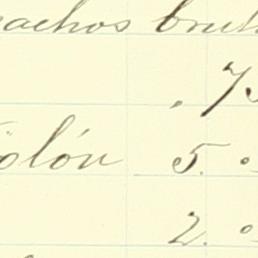 machos brut
.75
olón 5. o
2. o